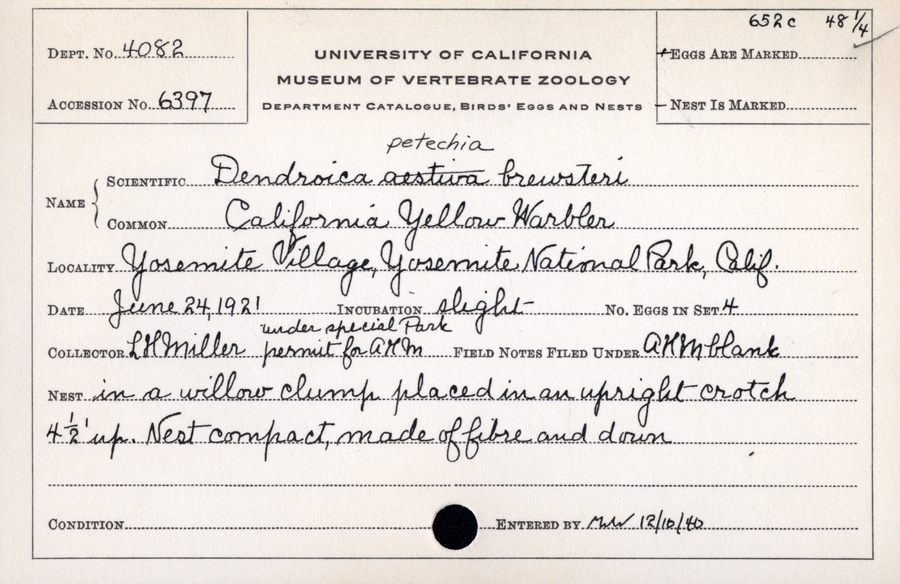 652c 48 1/4
Dept. No. 4082
UNIVERSITY OF CALIFORNIA
Eggs Are Marked
MUSEUM OF VERTEBRATE ZOOLOGY
Accession No. 6397
Department Catalogue, Birds' Eggs and Nests
Nest Is Marked
petechia
Name Scientific Dendroica aestiva brewsteri
Common California Yellow Warbler
Locality Yosemite Village, Yosemite National Park, Calif.
Date June 24, 1921 Incubation slight No. Eggs in Set 4
under special Park
Collector LHMiller permit for AHM Field Notes Filed Under AHM blank
Nest in a willow clump placed in an upright crotch
4 1/2' up. Nest compact, made of fibre and down
Condition Entered by 12/10/40